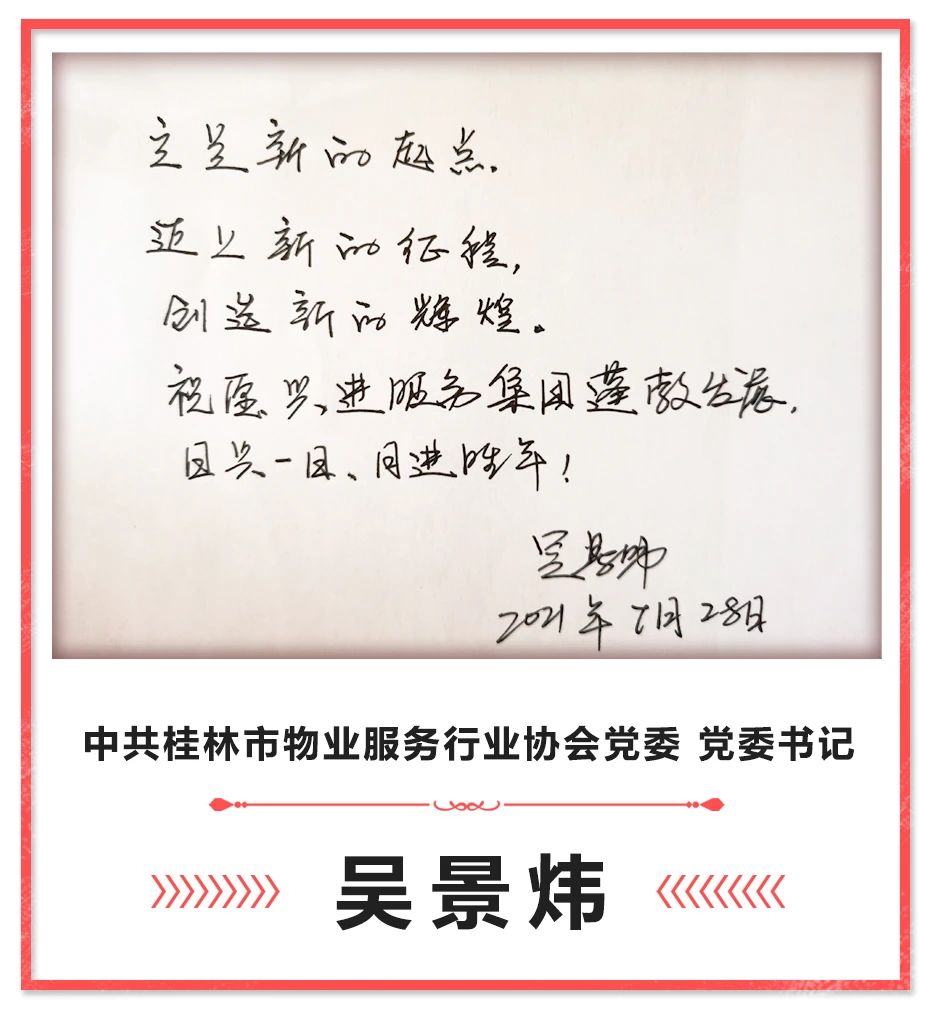 立足新的起点.
迈上新的征程,
创造新的辉煌。
祝愿兴进服务集团蓬勃发展,
日兴一日、月进胜年!
吴景炜
2021年7月28日
中共桂林市物业服务行业协会党委 党委书记
吴景炜